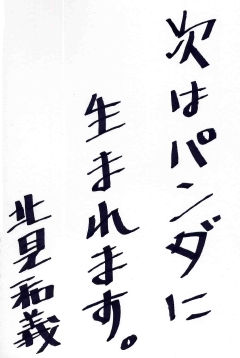 次はパンダに
生まれます。
北見和義